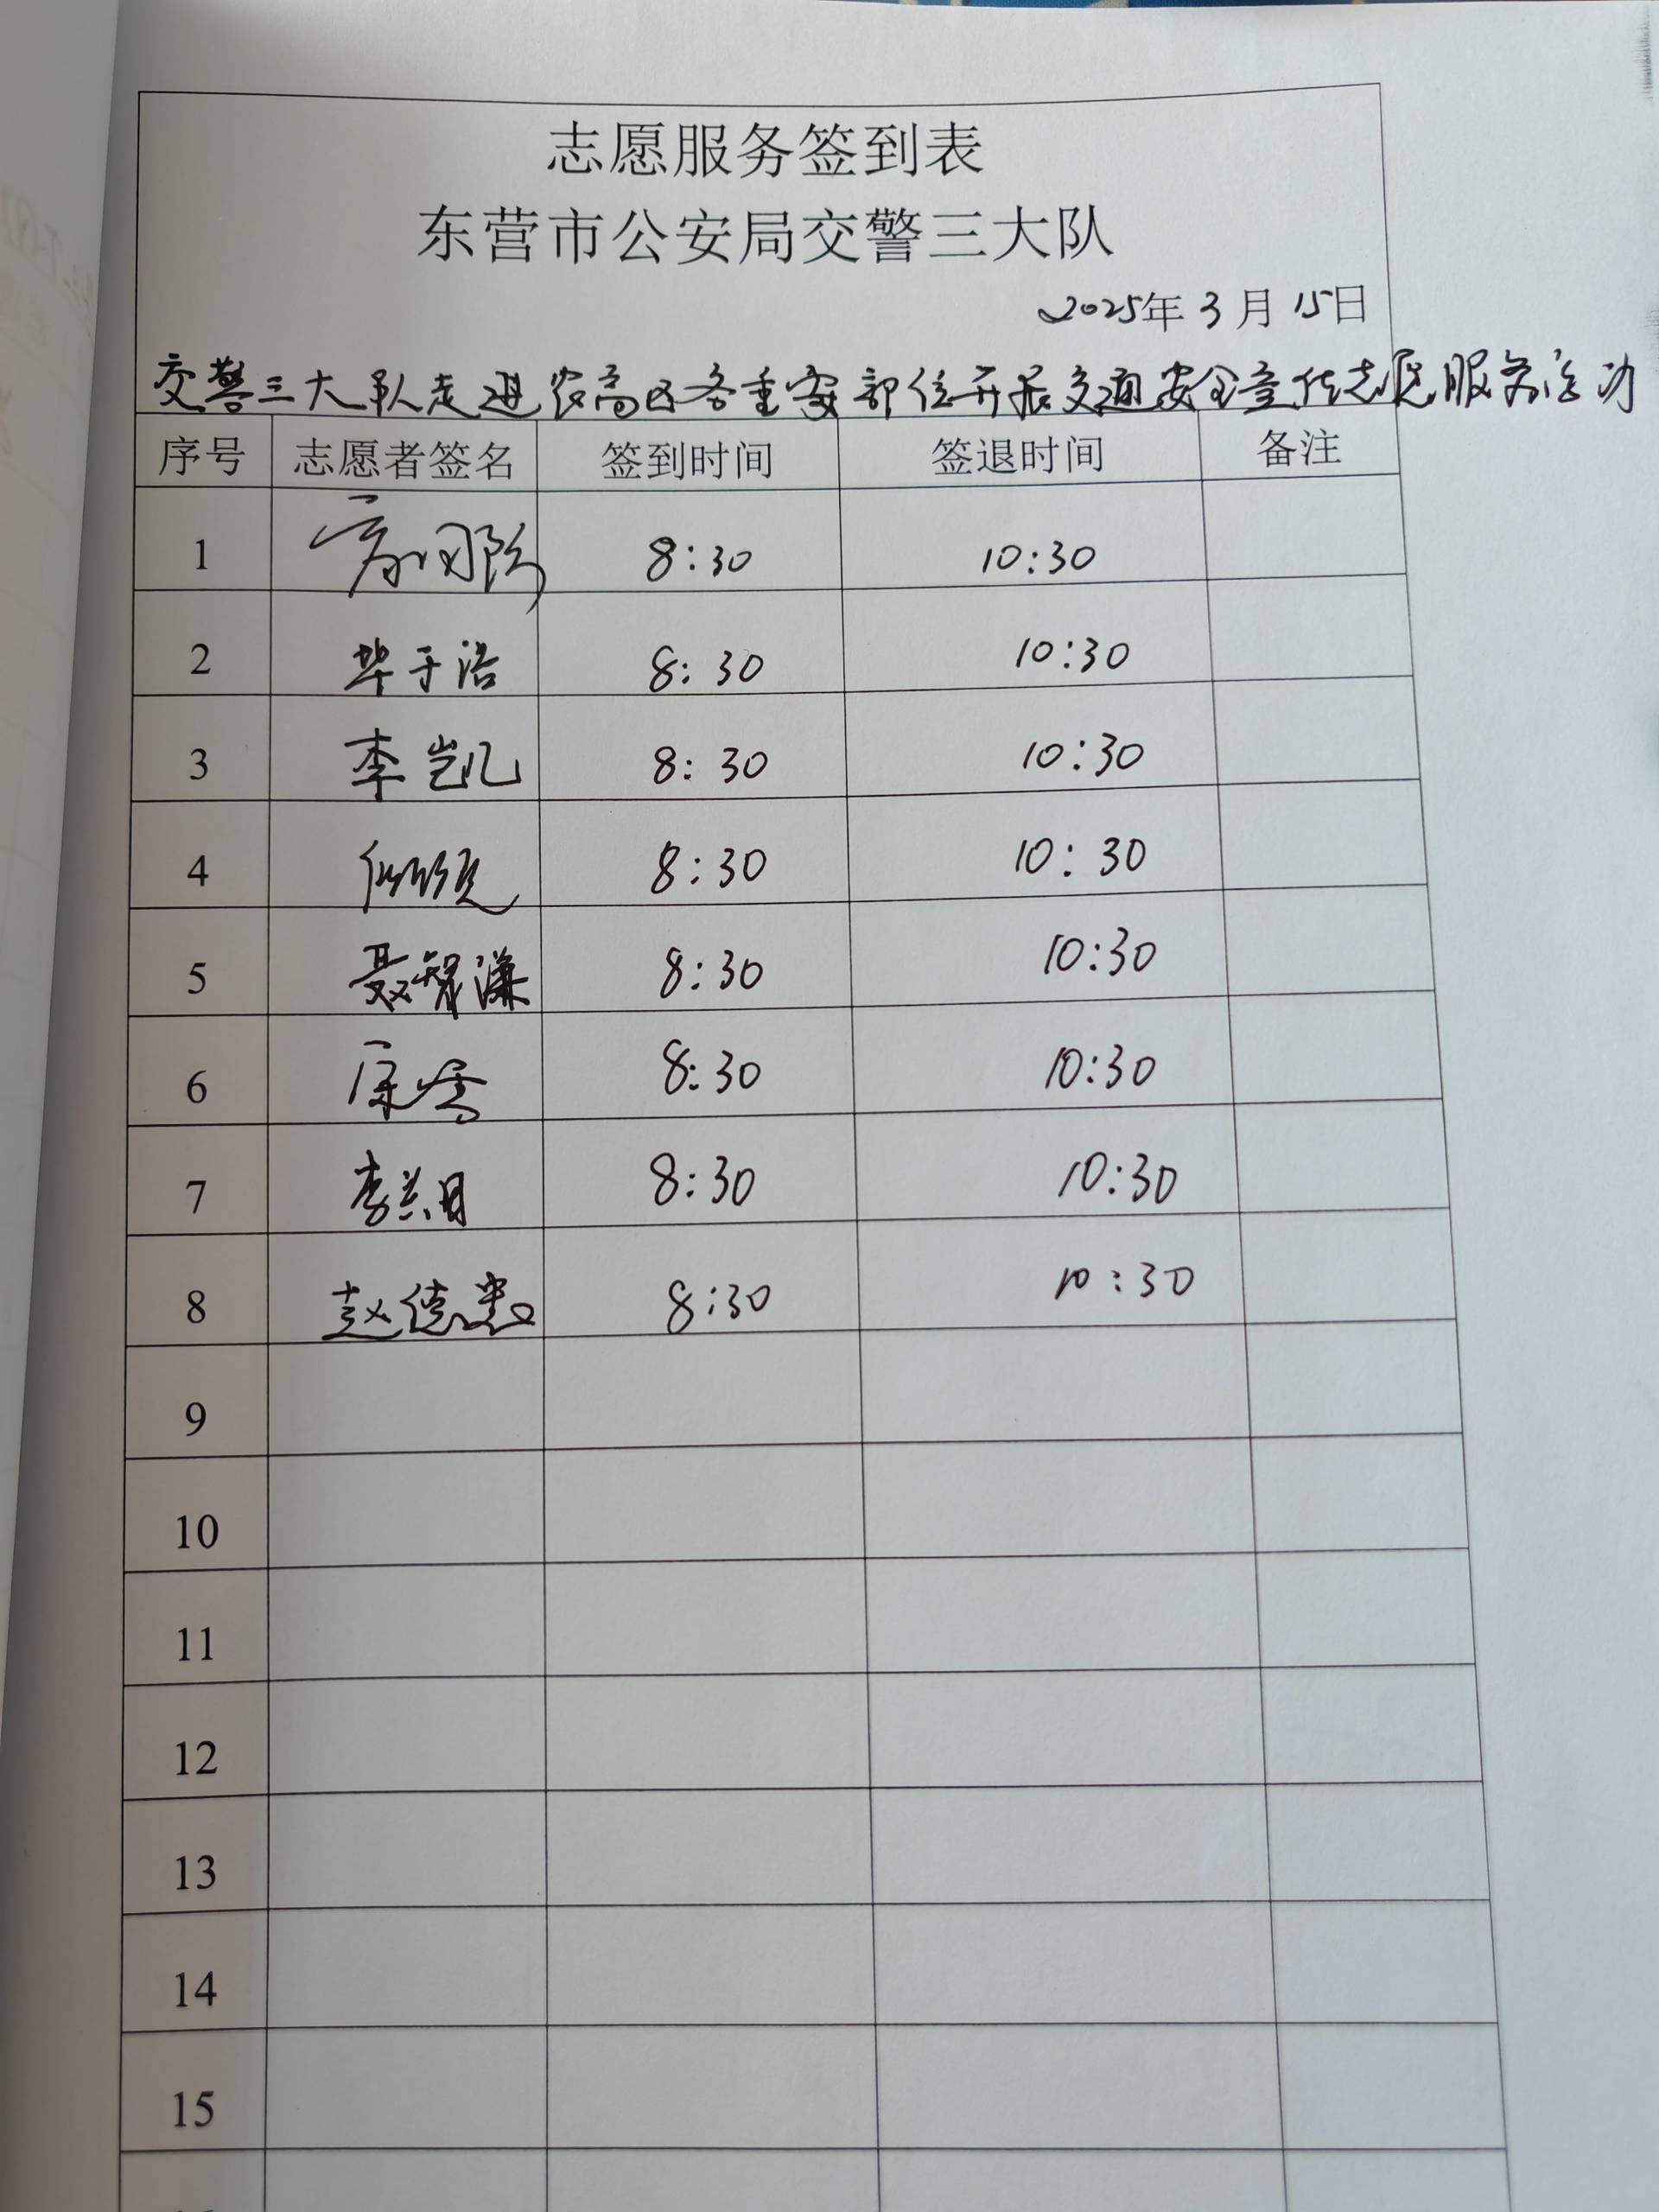 志愿服务签到表
东营市公安局交警三大队
2025年3月15日
交警三大队走进农高区各重要部位开展交通安全宣传志愿服务活动
序号 志愿者签名 签到时间 签退时间 备注
1 8:30 10:30
2 毕于浩 8:30 10:30
3 李凯 8:30 10:30
4 8:30 10:30
5 聂智谦 8:30 10:30
6 8:30 10:30
7 李兴国 8:30 10:30
8 赵德忠 8:30 10:30
9
10
11
12
13
14
15